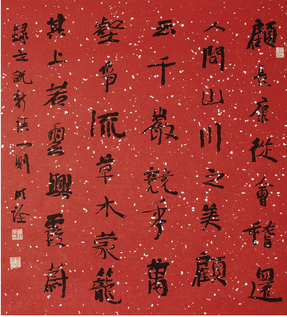 顧長康從會稽還
人問山川之美顧
云千巖競秀萬
壑爭流草木蒙籠
其上若雲興霞蔚
錄世說新語一則